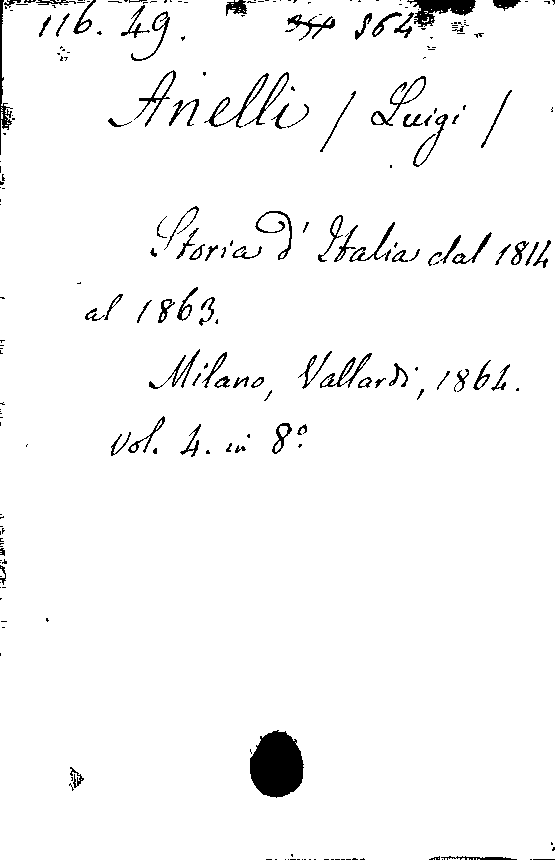 116. 49. 364
Anelli / Luigi /
Storia d'Italia dal 1814
al 1863.
Milano, Vallardi, 1864.
vol. 4. in 8º